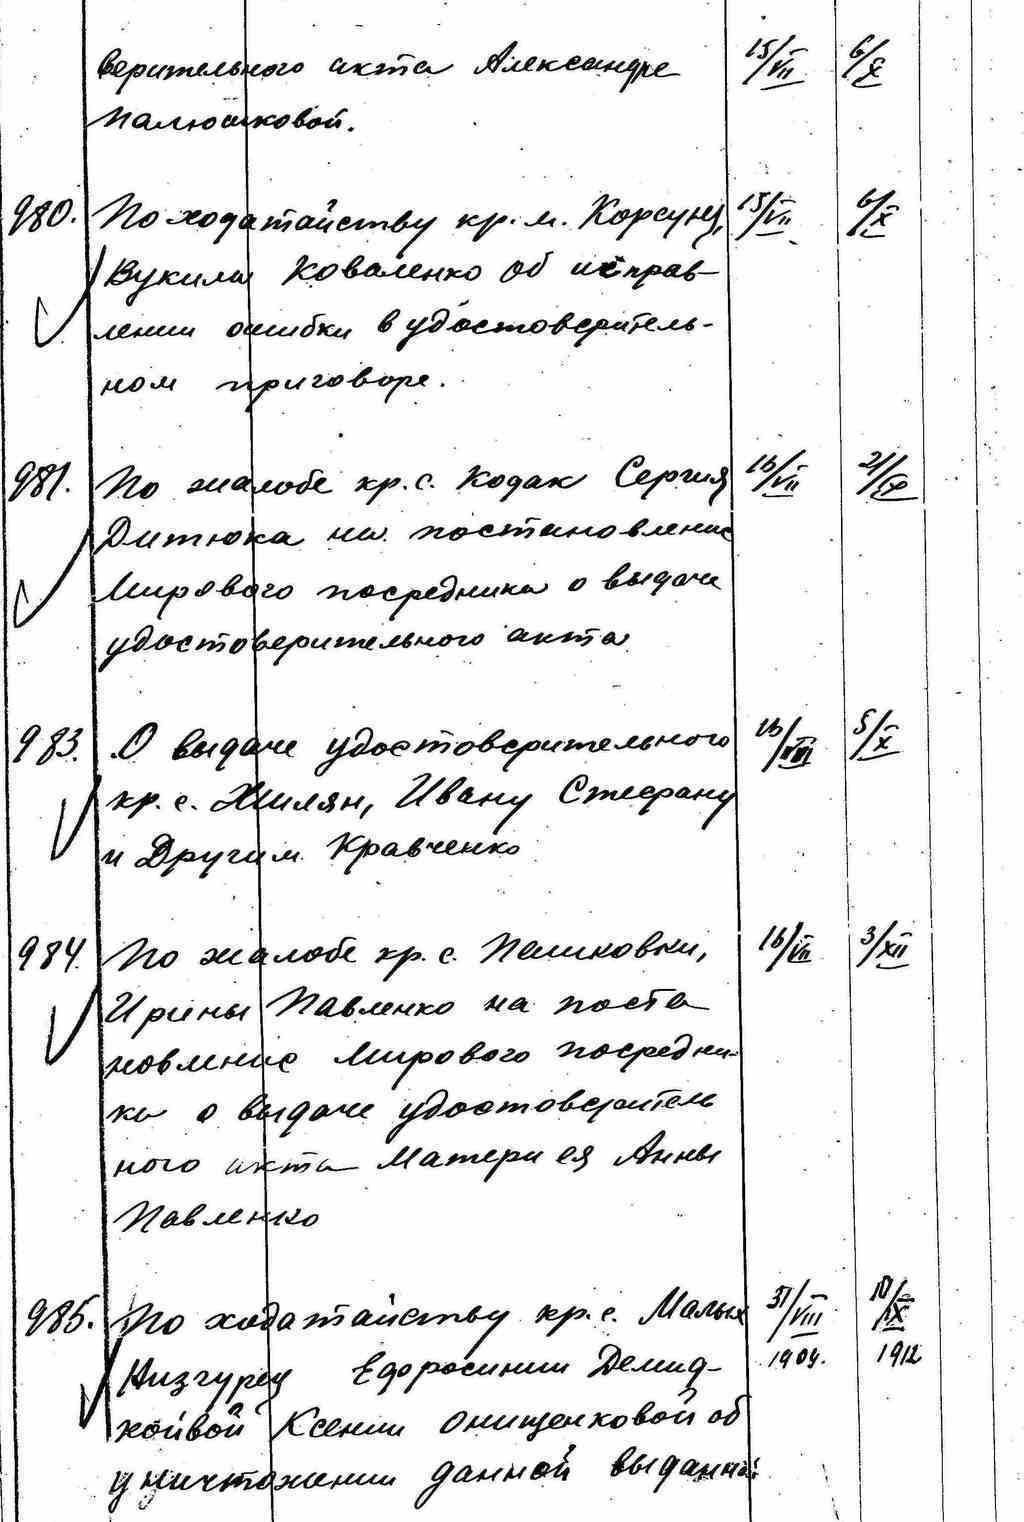 верительного акта Александре 15/VII 6/X
Палюшковой.
980. По ходатайству кр. м. Корсуня, 15/VII 6/X
Вукилы Коваленко об исправ-
лении ошибки в удостоверитель-
ном приговоре.
981. По жалобе кр. с. Кодак Сергия 16/VII 21/X
Дитюка на постановление
Мирового посредника о выдаче
удостоверительного акта
983. О выдаче удостоверительного 16/VIII 5/X
кр. с. Жилян, Ивану Стефану
и Другим Кравченко
984. По жалобе кр. с. Пешковки, 16/VII 3/XII
Ирины Павленко на поста
новление Мирового посредни-
ка о выдаче удостоверитель
ного акта Матери ея Анны
Павленко
985. По ходатайству кр. с. Малых 31/VIII /IX
Низгурец Ефросинии Демид- 1904. 1912
ковой Ксении Онищенковой об
уничтожении данной выданной